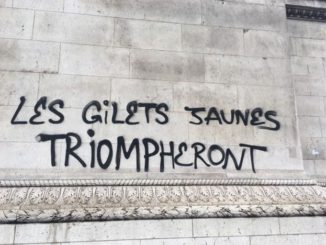 LES GiLETS JAUNES
TRiOMPHERONT